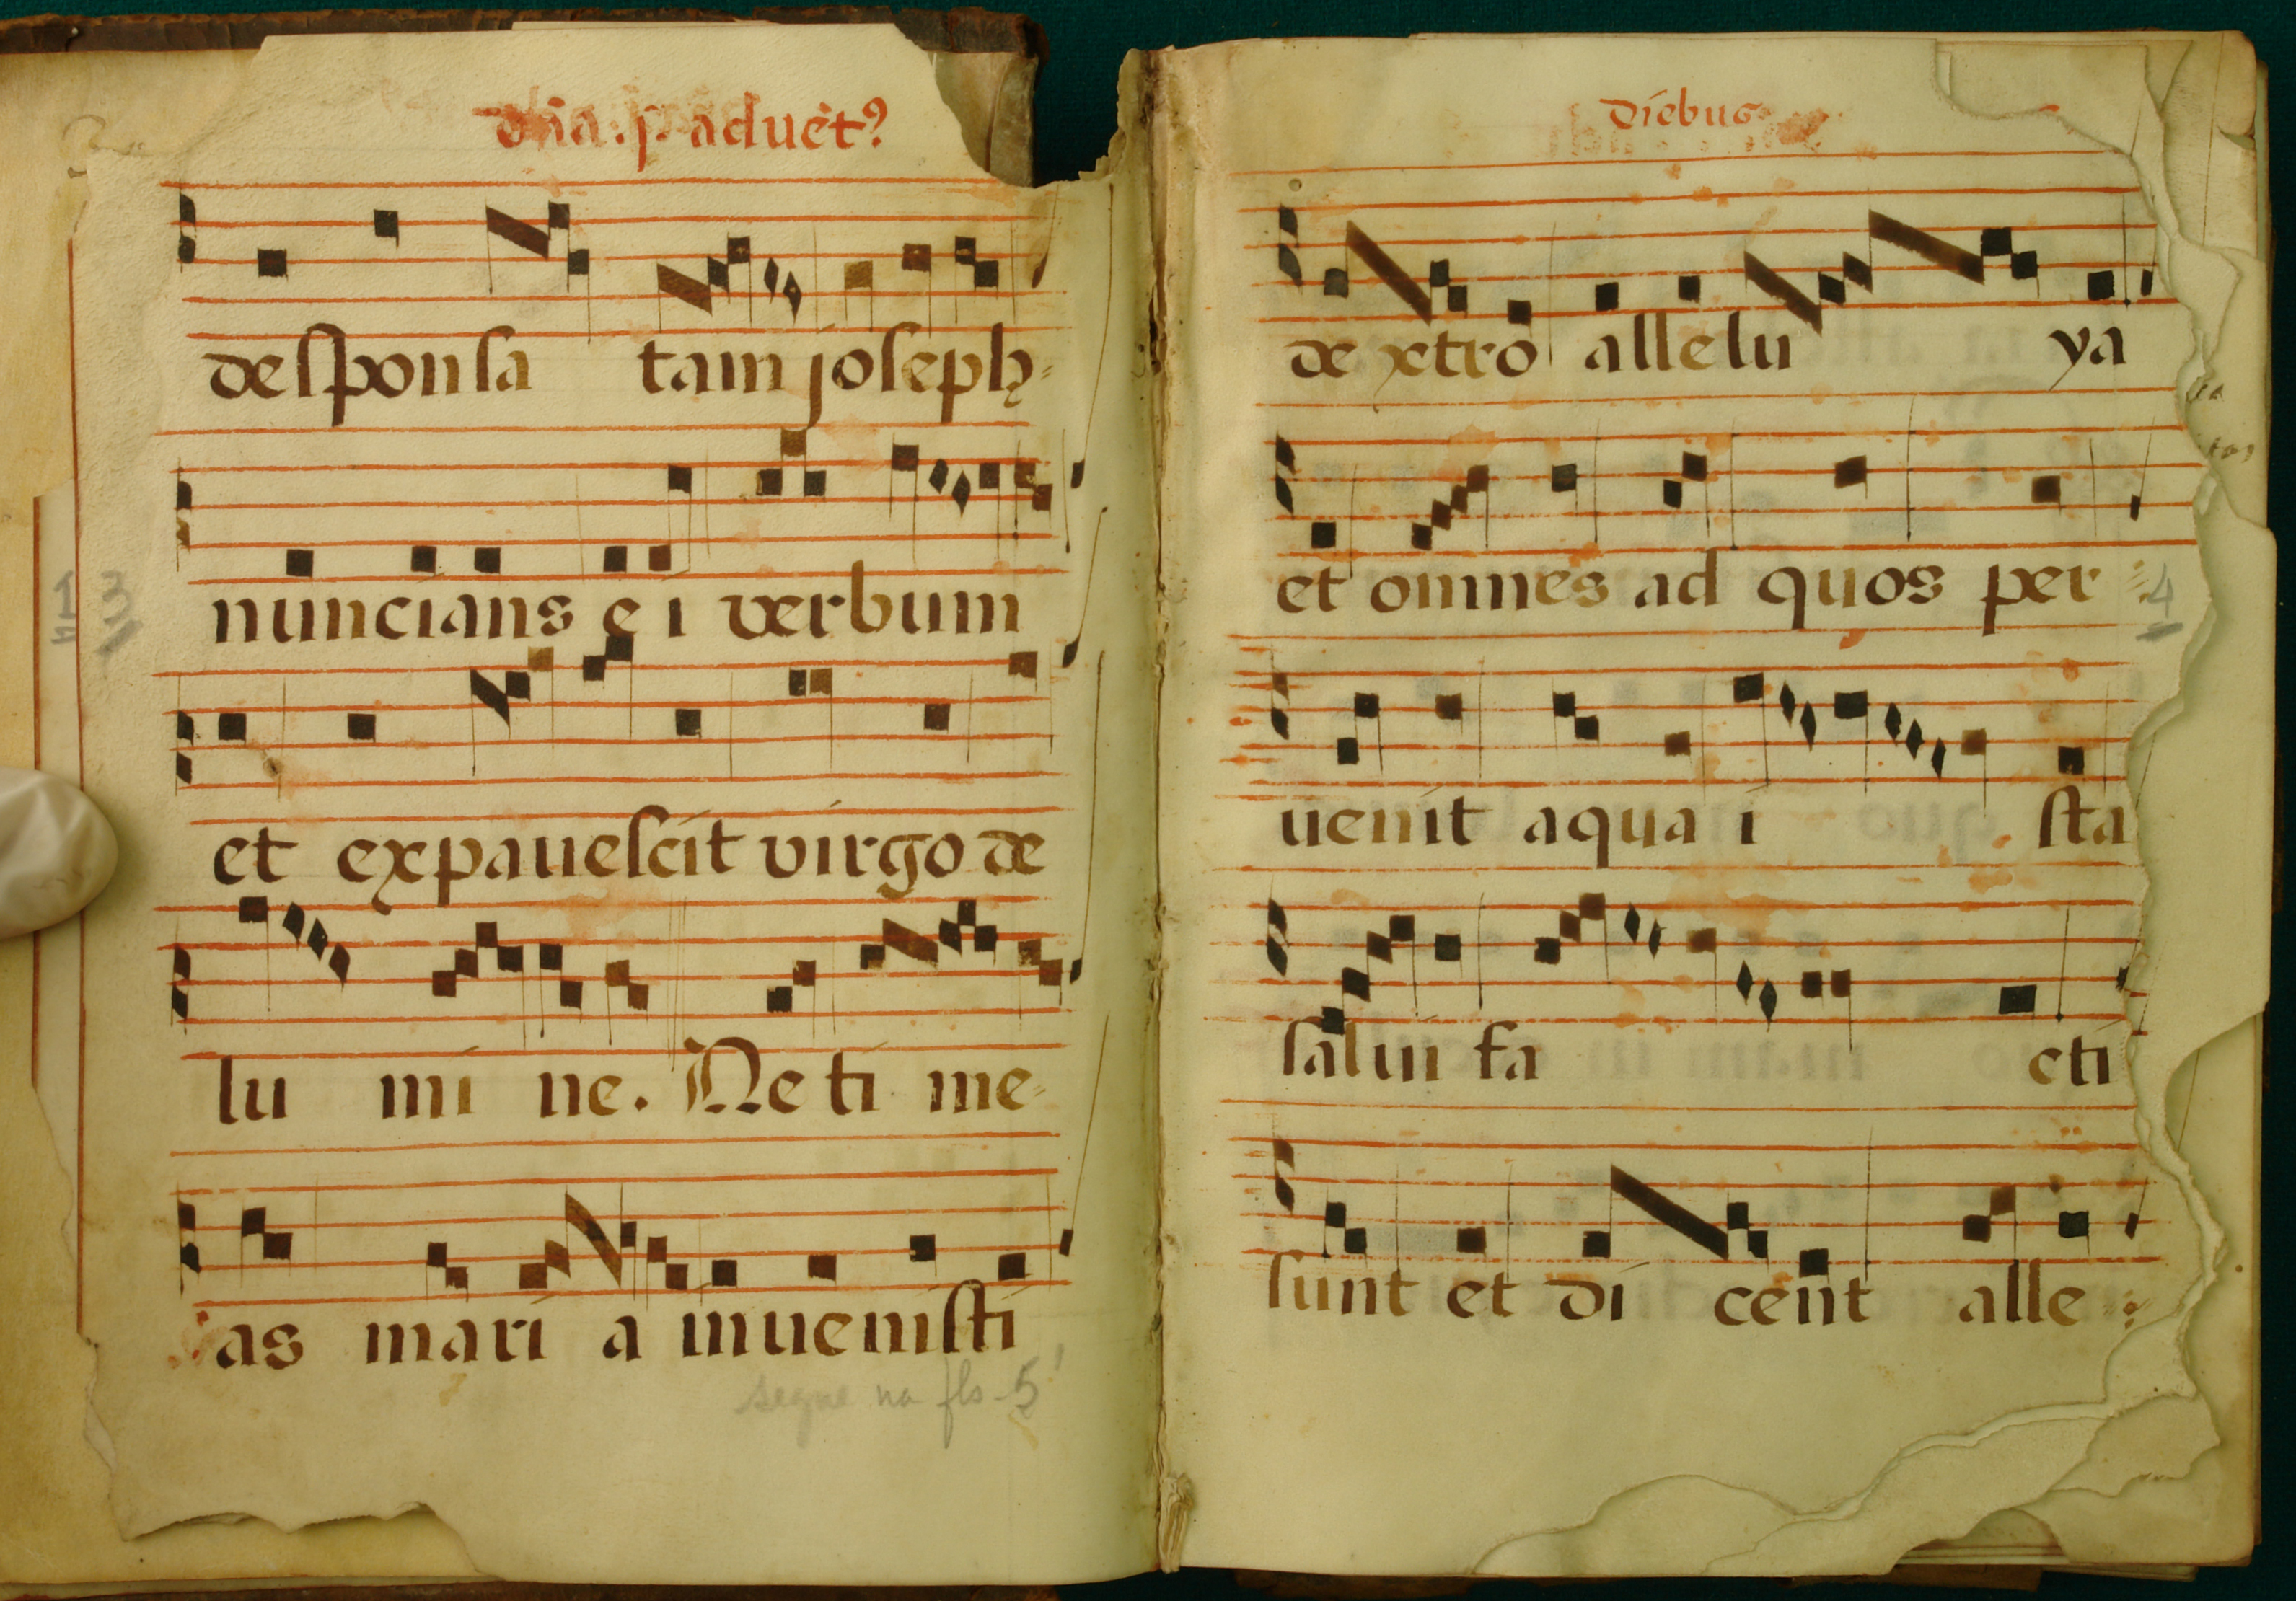 dn̄a. p. aduēt⁹
deſponſa tam joſeph
nuncians e i verbum
et expaueſcit virgo de
lu mi ne. Ne ti me
as mari a inueniſti
segue na fls. 5
13
Diebus
de xtro allelu ya
et omnes ad quos per
uenit aqua i ſta
ſalui fa cti
ſunt et di cent alle
4